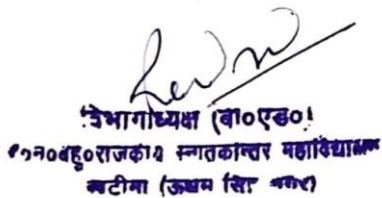 विभागाध्यक्ष (बी०एड०)
एच०न०बहु०राजकीय स्नातकोत्तर महाविद्यालय
खटीमा (ऊधम सिंह नगर)